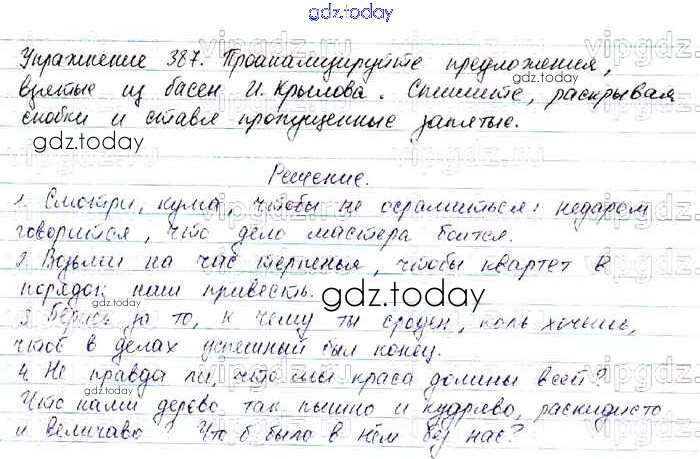 gdz.today
Упражнение 387. Проанализируйте предложения,
gdz.today
взятые из басен И. Крылова. Спишите, раскрывая
скобки и ставя пропущенные запятые.
gdz.today
Решение.
1. Смотри, кума, чтобы не осрамиться: недаром
говорится, что дело мастера боится.
2. Возьми на час терпенья, чтобы квартет в
порядок наш привесть.
gdz.today
3. Берись за то, к чему ты сроден, коль хочешь,
gdz.today
чтоб в делах успешный был конец.
4. Не правда ли, что мы краса долины всей?
gdz.today
Что нами дерево так пышно и кудряво, раскидисто
и величаво? Что б было в нём без нас?
gdz.today
vipgdz.ru